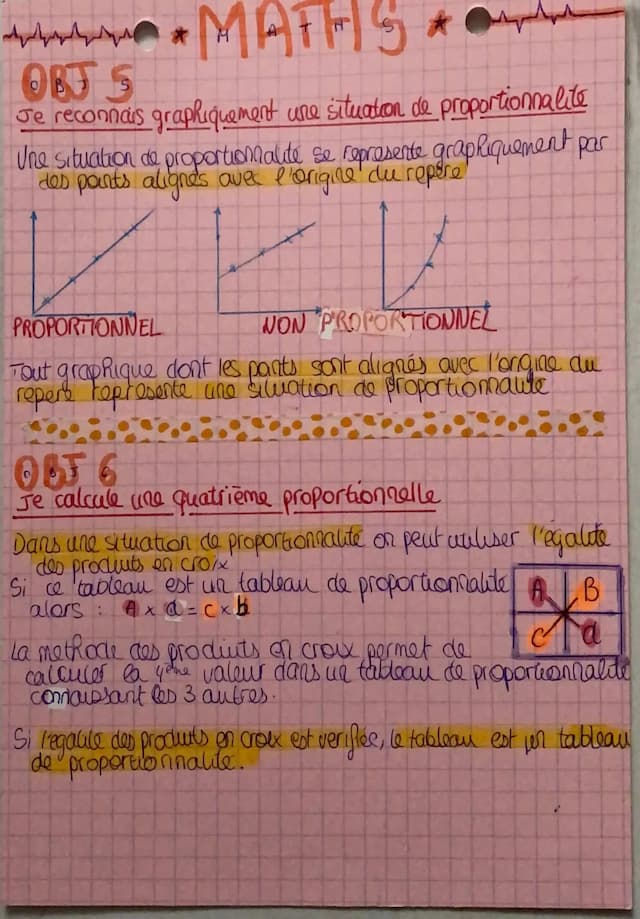 MATHS
OBJ 5
Je reconnais graphiquement une situation de proportionnalité
Une situation de proportionnalité se represente graphiquement par
des points alignés avec l'origine du repère
PROPORTIONNEL
NON PROPORTIONNEL
Tout graphique dont les points sont alignés avec l'origine du
repere represente une situation de proportionnalité
OBJ 6
Je calcule une quatrième proportionnelle
Dans une situation de proportionnalité on peut utiliser l'égalité
des produits en croix
Si ce tableau est un tableau de proportionnalité
alors : A x d = c x b
A B
C d
La methode des produits en croix permet de
calculer la 4ème valeur dans un tableau de proportionnalité
connaissant les 3 autres.
Si l'egalité des produits en croix est verifiée, le tableau est un tableau
de proportionnalité.